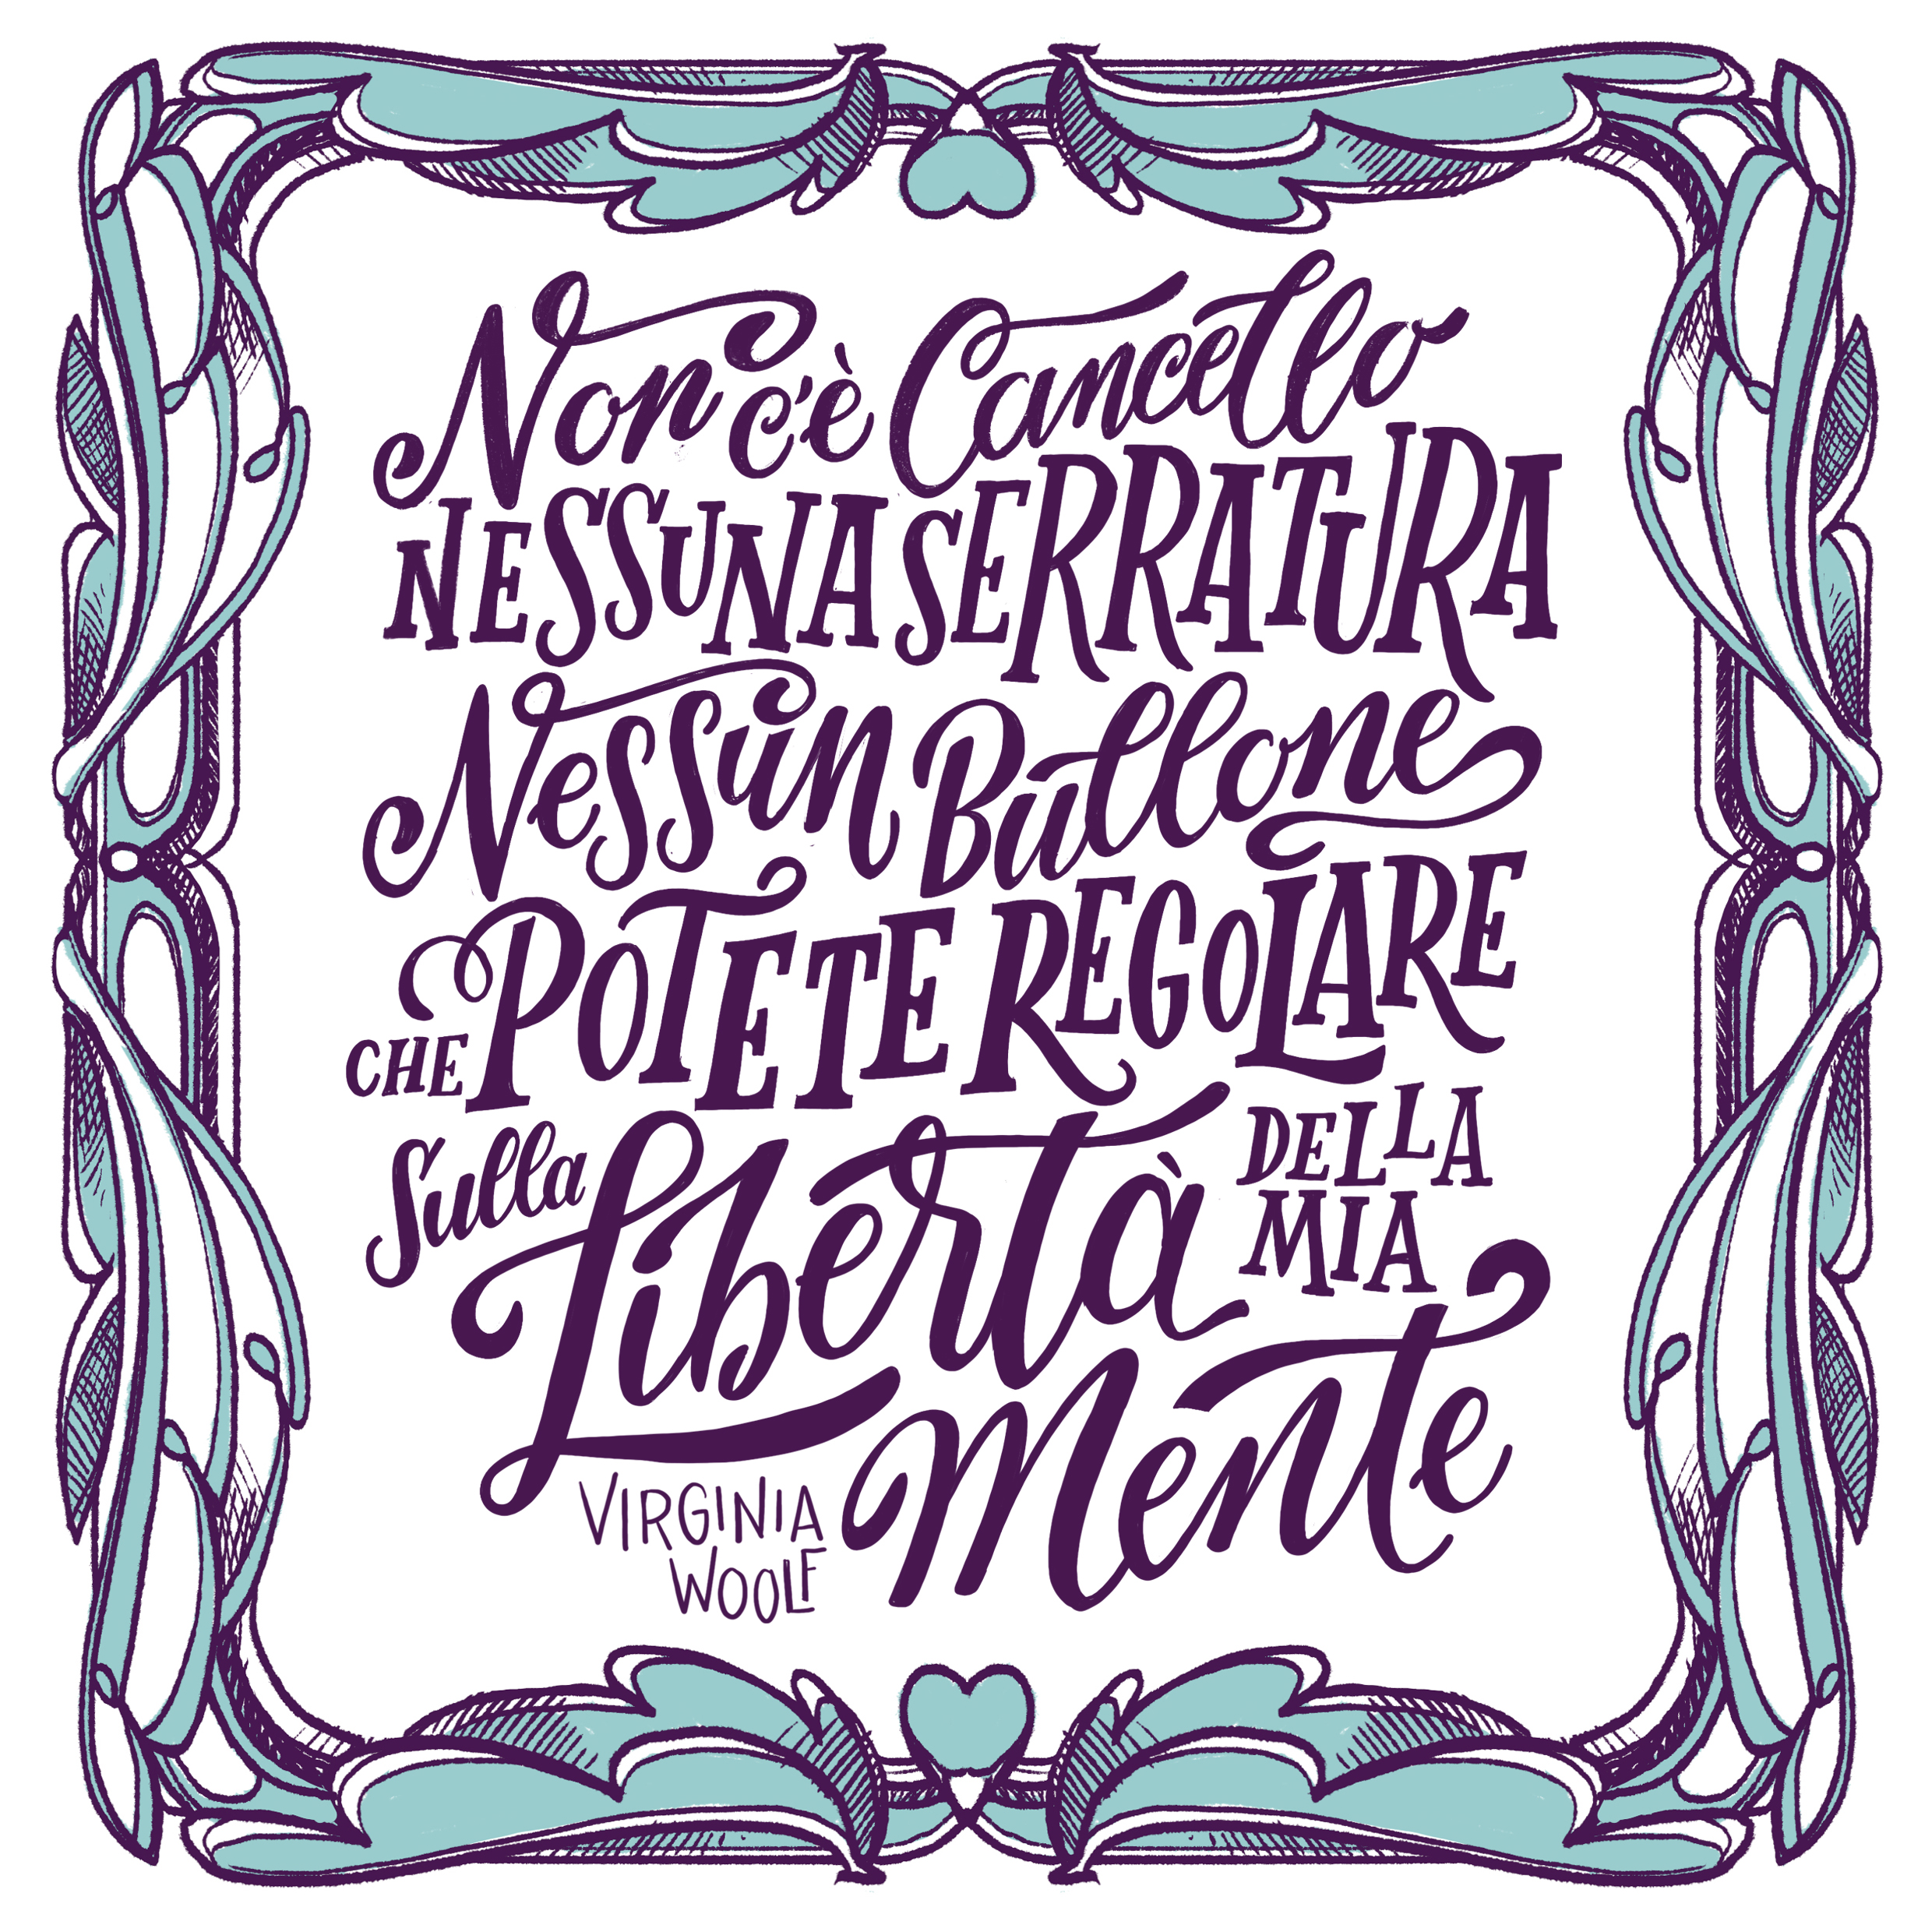 Non c'è Cancello
NESSUNA SERRATURA
Nessun Bullone
CHE POTETE REGOLARE
Sulla Libertà DELLA
MIA
Mente
VIRGINIA
WOOLF